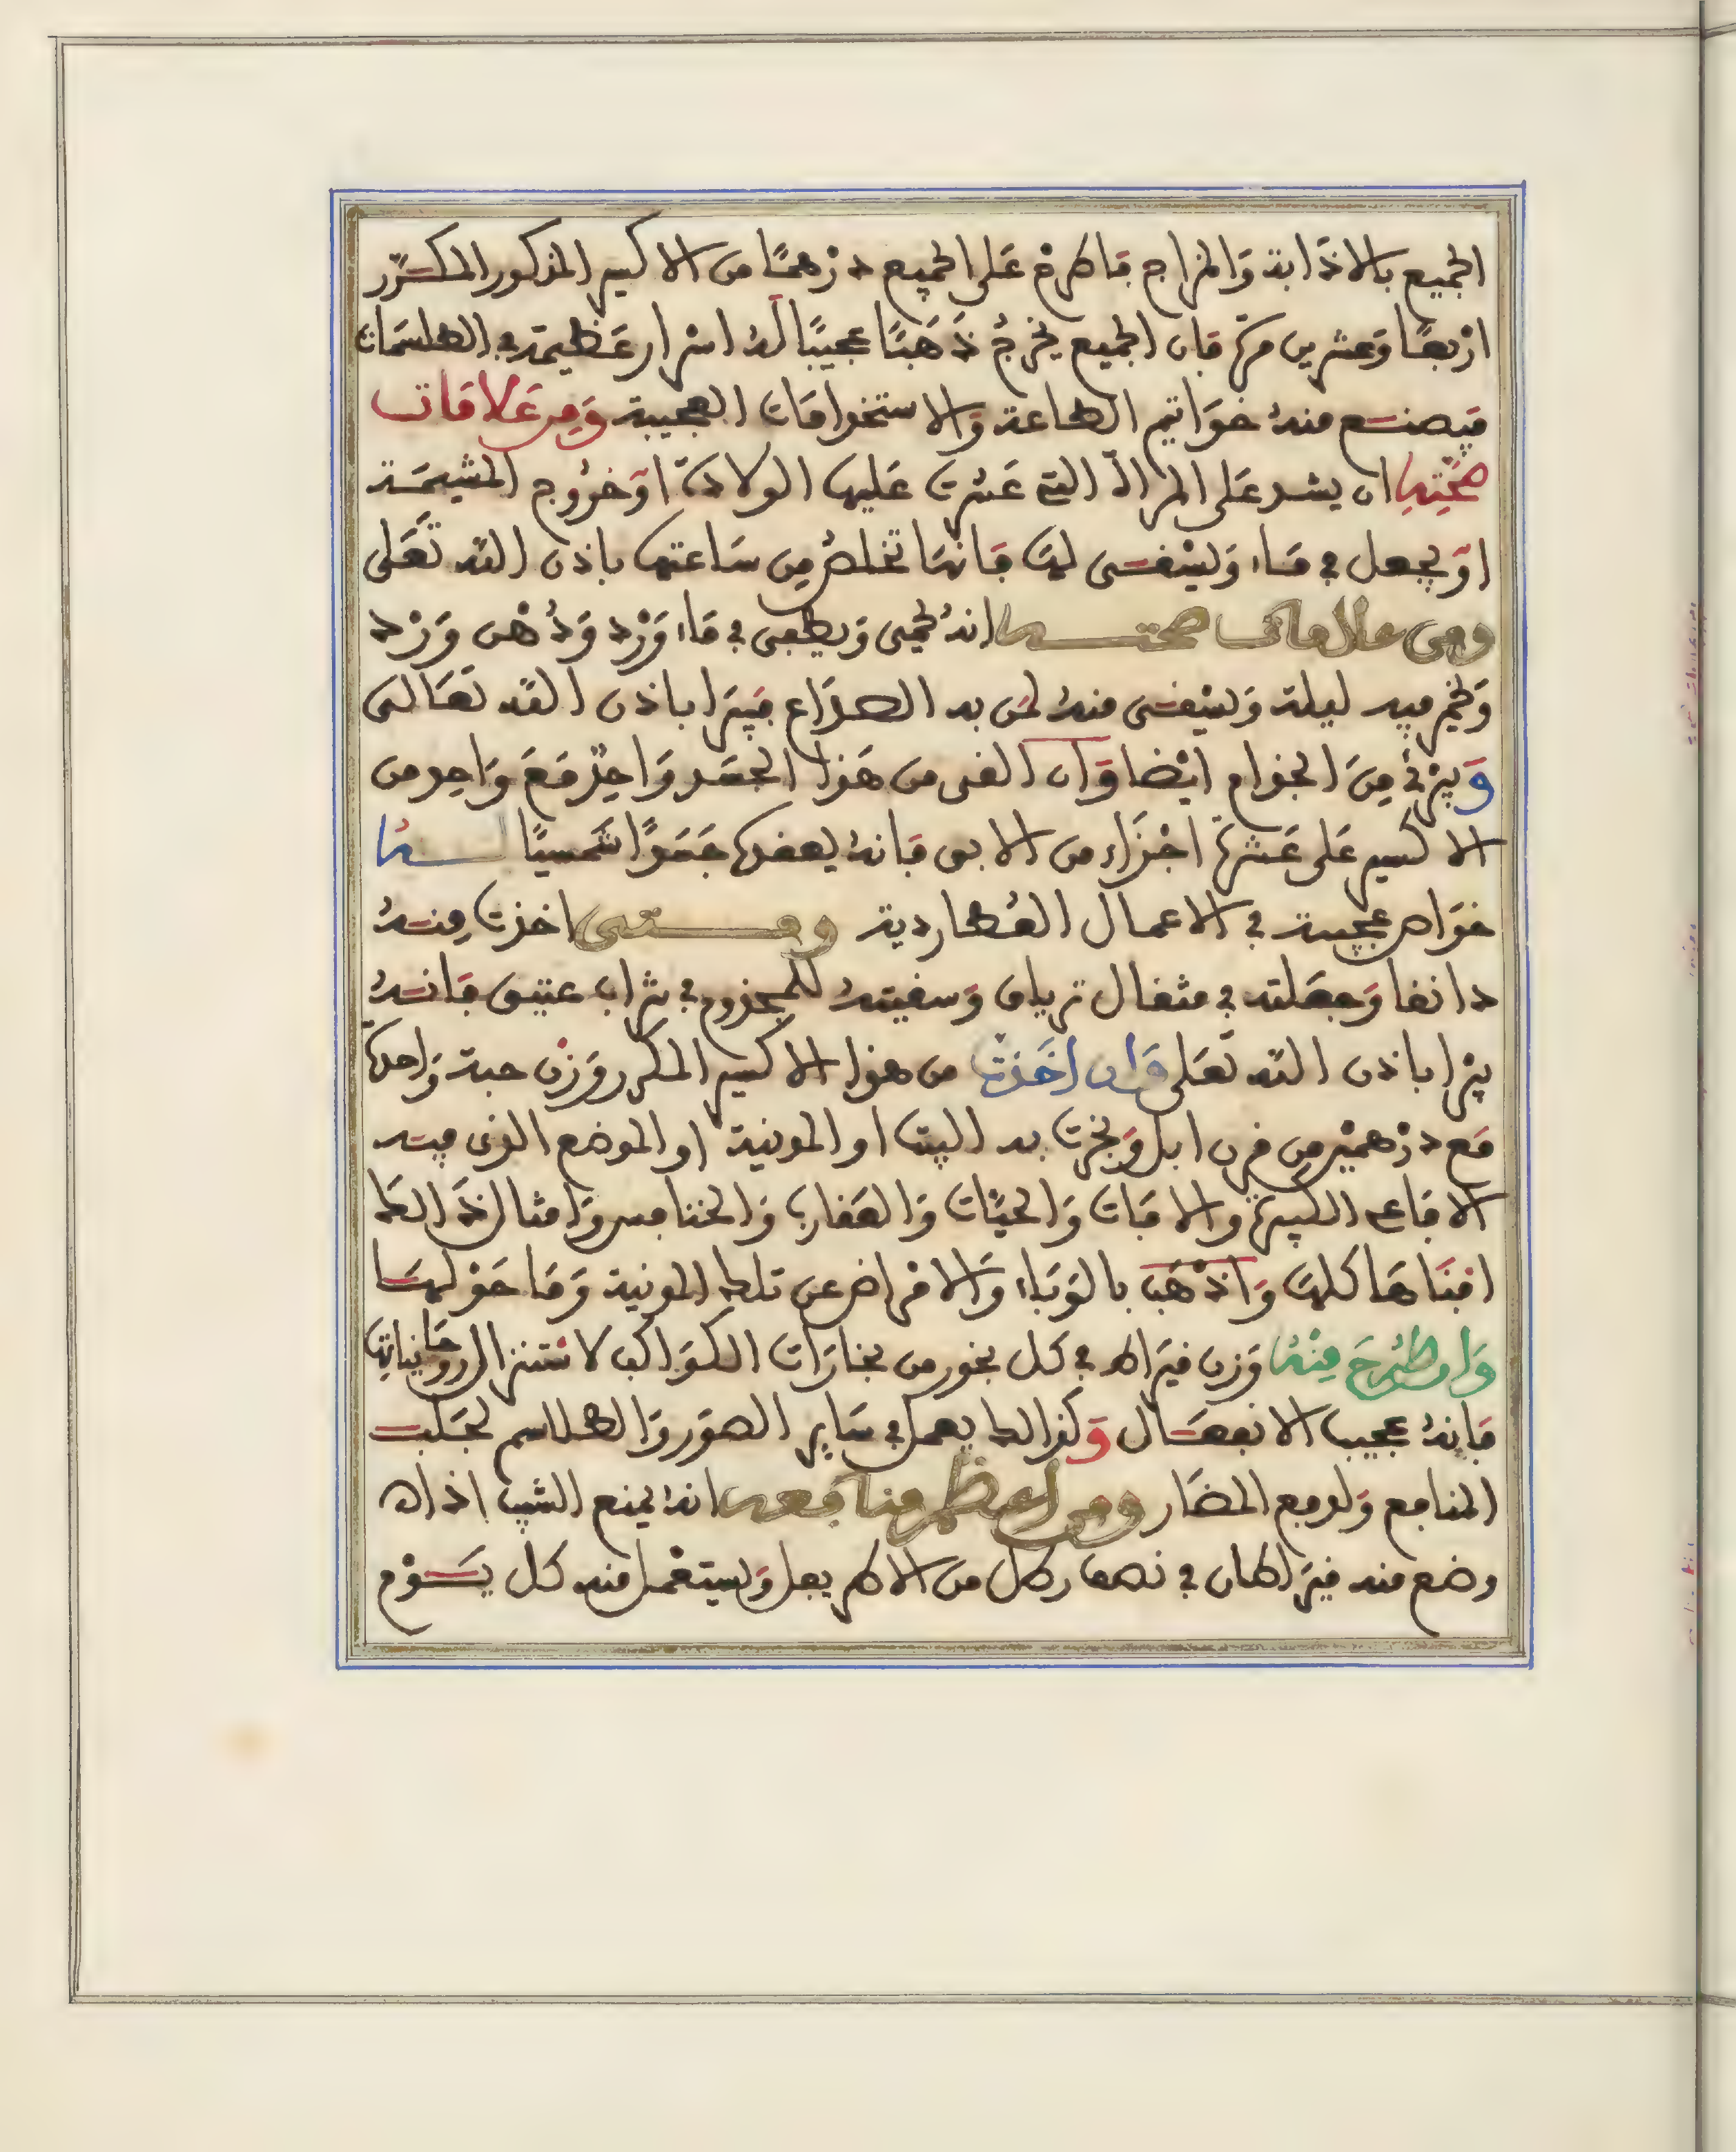 الجميع بالاذابة والمزاج فاطرح على الجميع درهما من الاكسير المذكور المكرر
اربعا وعشرين مرة فان الجميع يخرج ذهبا عجيبا له اسرار عظيمة في الطلسمات
فيصنع منه خواتيم الطاعة والاستخدامات العجيبة ومن علامات
صحتها ان يشد على المراة التي عسرت عليها الولادة او خروج المشيمة
او يجعل في ماء ويسقى لها فانها تخلص من ساعتها باذن الله تعلى
ومن علامات صحتها انه يحمى ويطفى في ماء ورد ودهن ورد
ويخمر فيه ليلة ويسقى منه لمن به الصداع فيبرا باذن الله تعالى
ويبرئ من الجذام ايضا وان القى من هذا الجسد واحد مع واحد من
الاكسير على عشرة اجزاء من الابق فانه يعقدها جمدا شمسيا لها
خواص عجيبة في الاعمال العطاردية ومتى اخذت منه
دانقا وجعلته في مثقال ترياق وسقيته للمجذوم في شراب عتيق فانه
يبرا باذن الله تعلى وان اخذت من هذا الاكسير المكرر وزن حبة واحدة
مع درهمين من قرن ابل وبخرت به البيت او المدينة او الموضع الذي فيه
الافاعي الكبيرة والافات والحيات والعقارب والخنافس وامثال ذالك
افناها كلها واذهب بالوباء والامراض عن تلك المدينة وما حولها
وان طرح منه وزن قيراط في كل بخور من بخارات الكواكب لاستنزال روحانياتها
فانه عجيب الانفعال وكذالك يعمل في ساير الصور والطلاسم لجلب
المنافع ولدفع المضار ومن اعظم منافعه انه يمنع الشيب اذا
وضع منه قيراطان في نصف رطل من الاطريفل ويستعمل منه كل يوم